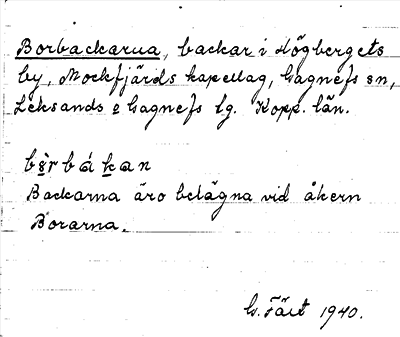 Borbackarna, backar i Högbergets
by, Mockfjärds kapellag, Gagnefs sn,
Leksands o Gagnefs tg. Kopp. län.
bòrbákan
Backarna äro belägna vid åkern
Borarna.
G. 1940.